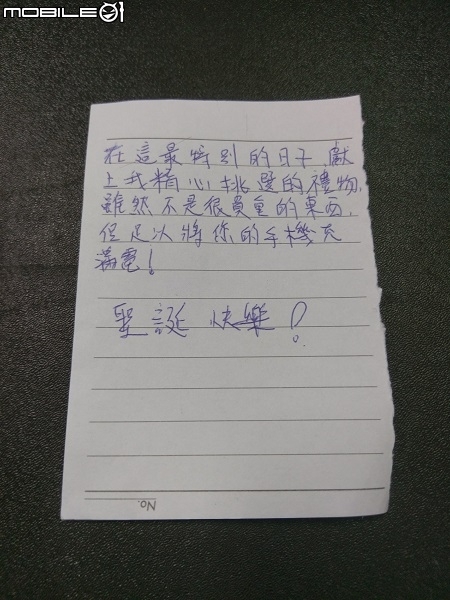 MOBILE01
在這最特別的日子,獻
上我精心挑選的禮物,
雖然不是很貴重的東西,
但足以將您的手機充
滿電!
聖誕 快樂!
No.